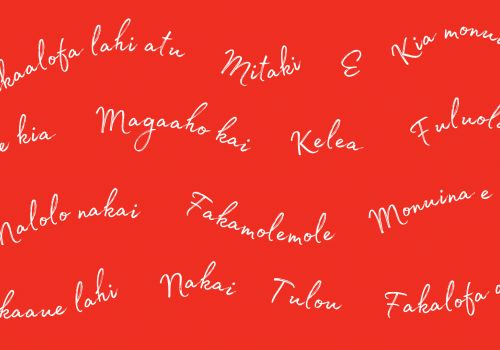 kaalofa lahi atu Mitaki E Kia monui
e kia Magaaho kai Kelea Fuluola
Malolo nakai Fakamolemole Monuina e
kaaue lahi Nakai Tulou Fakalofa a